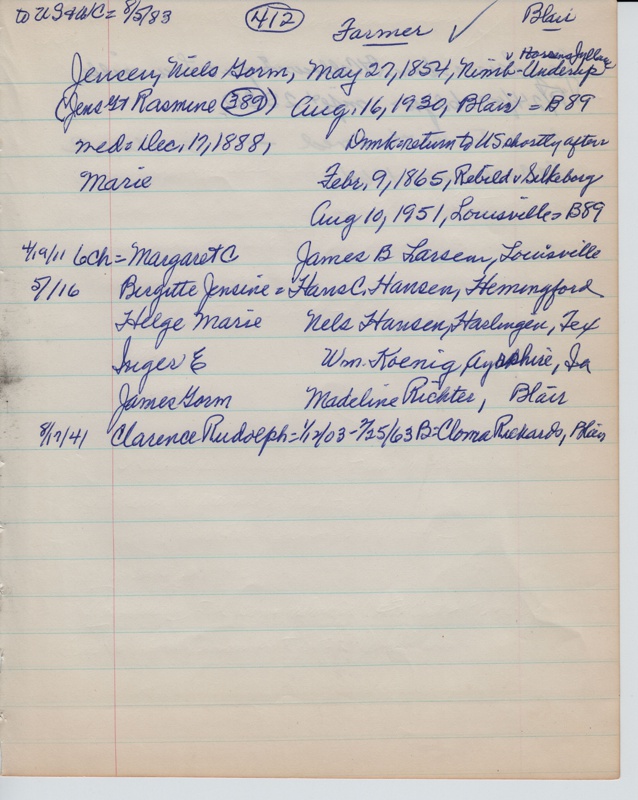 to US & WC = 8/5/83 412 Farmer ✓ Blair
v Horsens Jylland
Jensen, Niels Gorm, May 27, 1854, Nimb-Underup
(Jens G & Rasmine 389) Aug, 16, 1930, Blair = B89
med = Dec, 17, 1888, Dmk = return to US shortly after
Marie Febr, 9, 1865, Rebild v Silkeborg
Aug 10, 1951, Louisville = B89
4/19/11 6ch = Margaret C James B Larsen, Louisville
5/16 Birgitte Jensine = Hans C. Hansen, Hemingford
Helge Marie Nels Hansen, Harlingen, Tex
Inger E Wm. Koenig, Ayrshire, Ia
James Gorm Madeline Richter, Blair
8/17/41 Clarence Rudolph = 1/12/03 - 7/25/63 B = Cloma Rickards, Blair